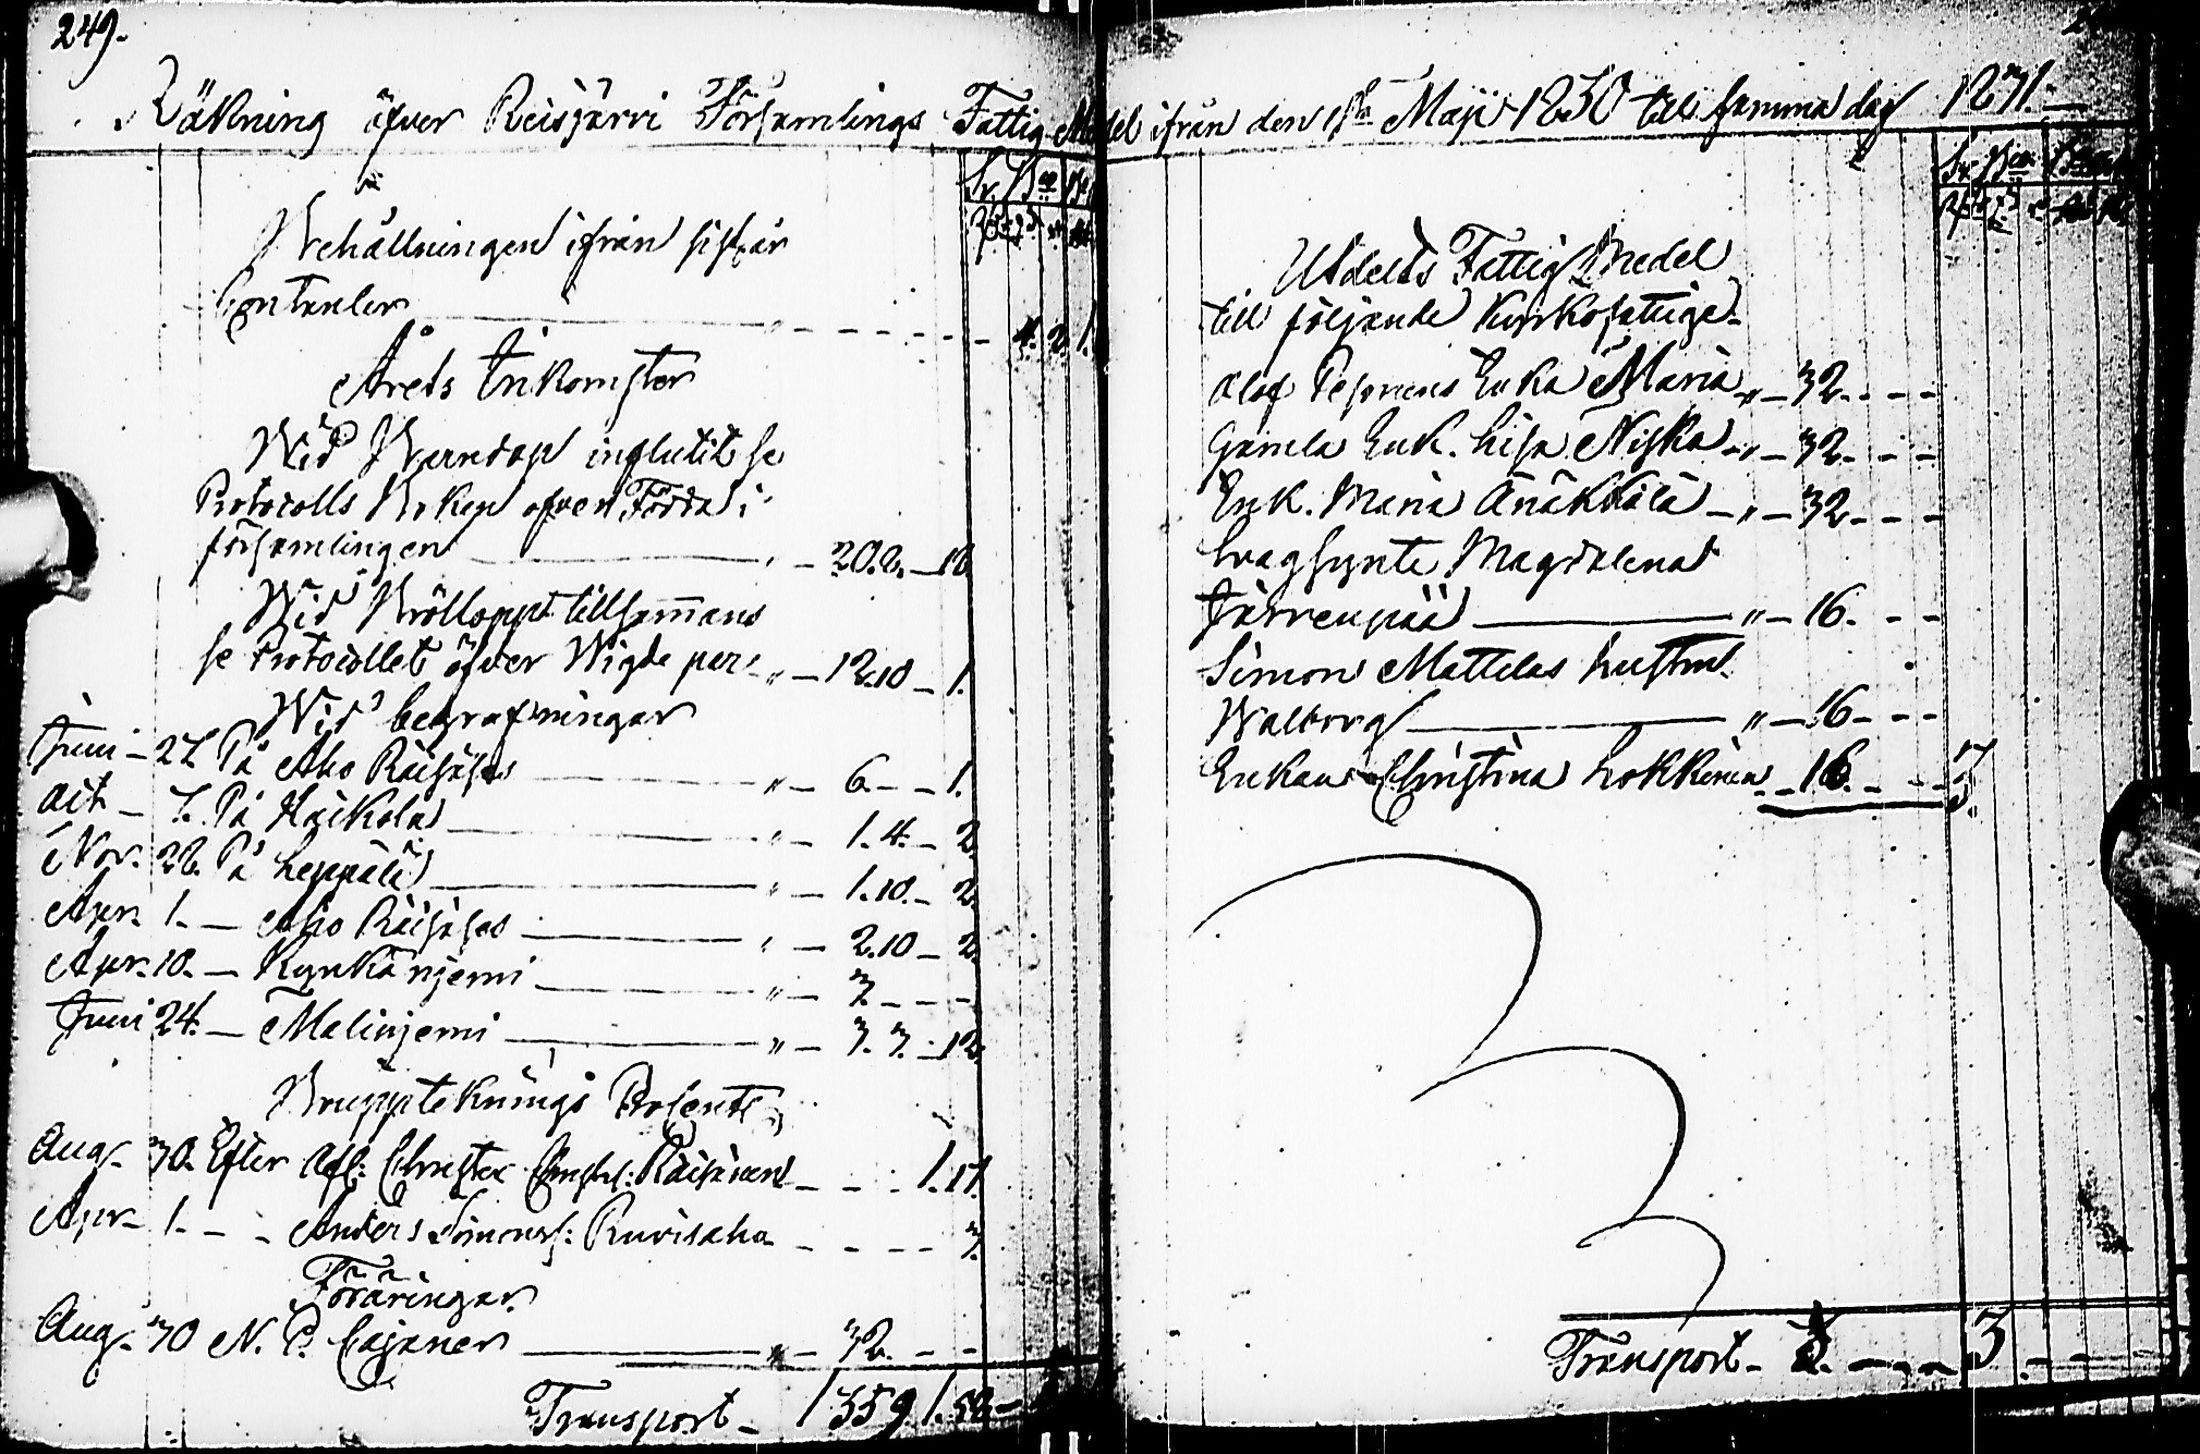 249.
Räkning öfver Reisjärvi Församlings Fattig Medel ifrån den 1sta Maji 1830 till samma dag 1831.
Behållningen ifrån sistl. år
Contanter - 4. 2. 1.
Årets Inkomster
Wid Barndop influtit se
Protocolls Boken öfver Födda i
församlingen - 20. 2. - 10.
Wid Bröllopp tillsammans
se Protocollet öfver Wigde par - 12.10 - 1.
Wid begrafningar
Juni - 27. På Aho Räisähas - 6. - 1.
Oct - 7. På Haikola - 1. 4. - 2.
Nov. 28. På Leppälä - 1. 10. - 2.
Apr. 1. - Aho Räisähas - 2.10 - 2.
Apr. 10. - Kynkäniemi - 3. - - -
Juni 24. - Maliniemi - 3. 3. - 12.
Boupptecknings Procente
Aug. 30. Efter Afl: Christer Christ: Räisänen - 1. 17.
Apr. 1. - - Anders Simonss: Ruuisaho - 3.
Föräringar
Aug. 30 N. P. Cajaner - 32. - -
Transport - 1 35 9 1. 52 -
Utdelts Fattig Medel
till följande Kyrkofattige
Olof Pesonens Enka Maria - 32. - - -
Gamla Enk. Lisa Niska - 32. - - -
Enk. Maria Änäkkälä - 32. - - -
Svagsynte Magdalena
Järvenpää - 16. - -
Simon Mattilas hustru
Walborg - 16 - - -
Enkan Christina Lokkinen - 16. - - 3.
Transport - 3. - - -